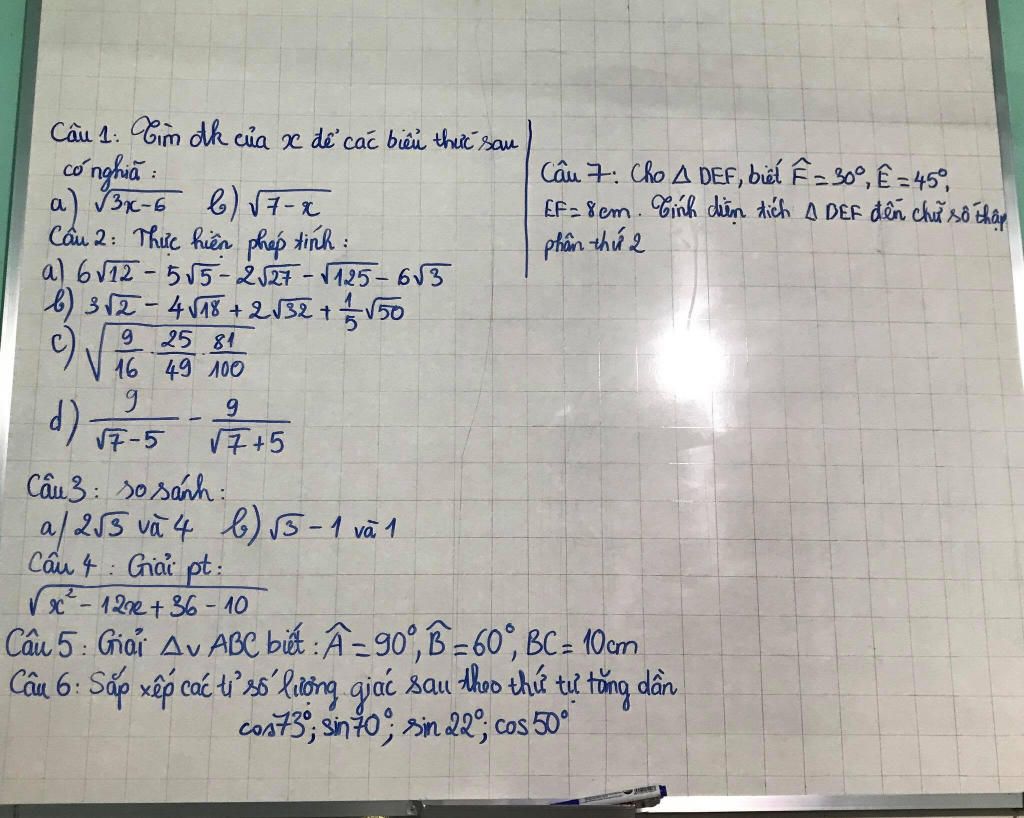 Câu 1: Tìm đk của x để các biểu thức sau
có nghĩa:
a) √3x-6 b) √7-x
Câu 2: Thực hiện phép tính:
a) 6√12 - 5√5 - 2√27 - √125 - 6√3
b) 3√2 - 4√18 + 2√32 + 1/5 √50
c) √(9/16 . 25/49 . 81/100)
d) 9/(√7-5) - 9/(√7+5)
Câu 3: so sánh:
a/ 2√3 và 4 b) √3 - 1 và 1
Câu 4: Giải pt:
√x² - 12x + 36 - 10
Câu 5: Giải Δv ABC biết: Â = 90°, B̂ = 60°, BC = 10cm
Câu 6: Sắp xếp các tỉ số lượng giác sau theo thứ tự tăng dần
cos73°; sin70°; sin 22°; cos 50°
Câu 7: Cho Δ DEF, biết F̂ = 30°, Ê = 45°,
EF = 8cm. Tính diện tích Δ DEF đến chữ số thập
phân thứ 2